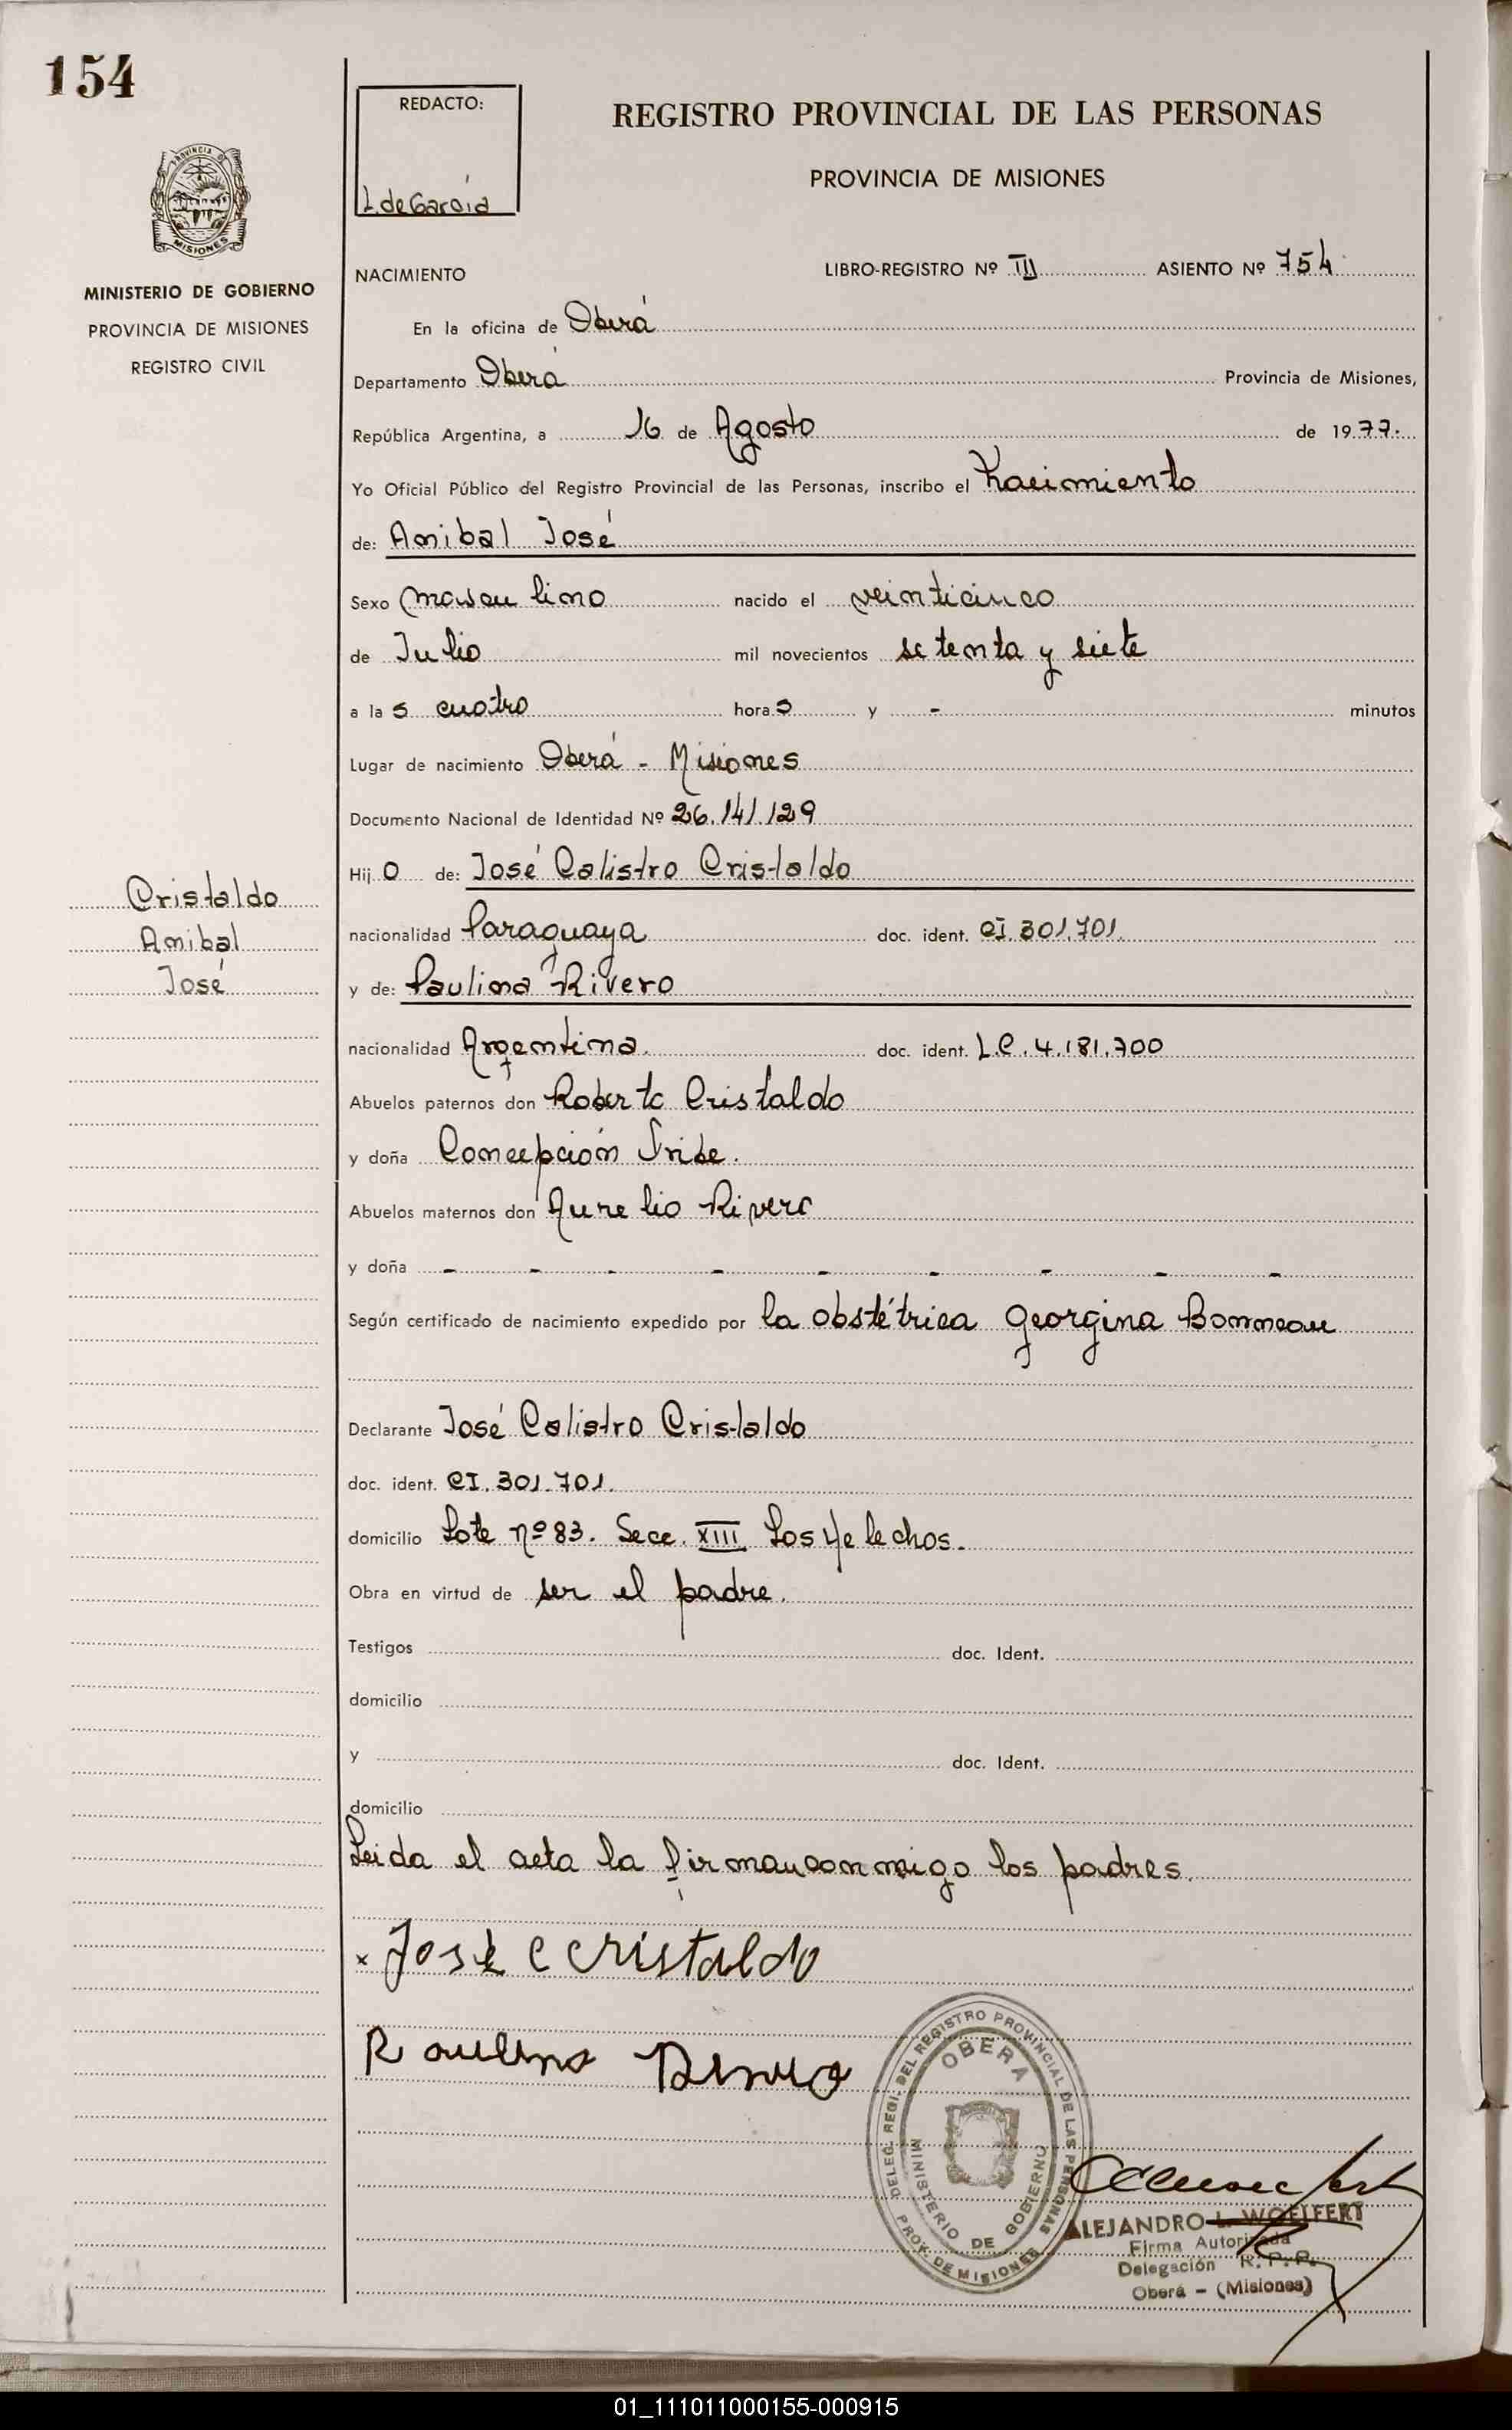 154
REDACTO:
L. de García
REGISTRO PROVINCIAL DE LAS PERSONAS
PROVINCIA DE MISIONES
MINISTERIO DE GOBIERNO
PROVINCIA DE MISIONES
REGISTRO CIVIL
NACIMIENTO LIBRO-REGISTRO Nº III ASIENTO Nº 754
En la oficina de Oberá
Departamento Oberá Provincia de Misiones,
República Argentina, a 16 de Agosto de 1977.
Yo Oficial Público del Registro Provincial de las Personas, inscribo el Nacimiento
de: Anibal José
Sexo masculino nacido el veinticinco
de Julio mil novecientos setenta y siete
a las cuatro horas y - minutos
Lugar de nacimiento Oberá - Misiones
Documento Nacional de Identidad Nº 26.141.129
Hijo de: José Calistro Cristaldo
Cristaldo
Anibal
José
nacionalidad Paraguaya doc. ident. CI. 301.701.
y de: Paulina Rivero
nacionalidad Argentina. doc. ident. L.C. 4.181.700
Abuelos paternos don Roberto Cristaldo
y doña Concepción
Abuelos maternos don Aurelio Rivero
y doña - - - - - - - - -
Según certificado de nacimiento expedido por la obstétrica Georgina Bonneau
Declarante José Calistro Cristaldo
doc. ident. CI. 301.701.
domicilio Lote nº 83. Secc. XIII Los Helechos.
Obra en virtud de ser el padre.
Testigos doc. Ident.
domicilio
y doc. Ident.
domicilio
Leida el acta la firman conmigo los padres.
x José C Cristaldo
Paulina Rivero
DELEG. REGI. DEL REGISTRO PROVINCIAL DE LAS PERSONAS
OBERA
MINISTERIO DE GOBIERNO
PROV. DE MISIONES
ALEJANDRO L. WOELFERT
Firma Autorizada
Delegación R.P.P.
Oberá - (Misiones)
01_111011000155-000915